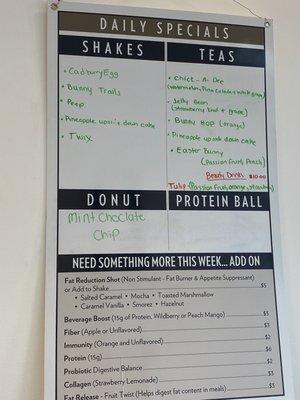 DAILY SPECIALS
SHAKES
• Cadbury Egg
• Bunny Trails
• Peep
• Pineapple upside down cake
• Twix
TEAS
• Chick-A-Dee
(watermelon, Pina Colada & white grape)
• Jelly Bean
(Strawberry kiwi + grape)
• Bunny HOP (orange)
• Pineapple upside down cake
• Easter Bunny
(Passion fruit, Peach)
Beauty Drinks $10.00
Tulip (Passion fruit, orange,
DONUT
Mint Choclate
Chip
PROTEIN BALL
NEED SOMETHING MORE THIS WEEK... ADD ON
Fat Reduction Shot (Non Stimulant - Fat Burner & Appetite Suppressant)
or Add to Shake $5
• Salted Caramel • Mocha • Toasted Marshmallow
• Caramel Vanilla • Smorez • Hazelnut
Beverage Boost (15g of Protein, Wildberry or Peach Mango) $3
Fiber (Apple or Unflavored) $3
Immunity (Orange and Unflavored) $2
Protein (15g) $6
Probiotic Digestive Balance $2
Collagen (Strawberry Lemonade) $3
Fat Release - Fruit Twist (Helps digest fat content in meals) $3